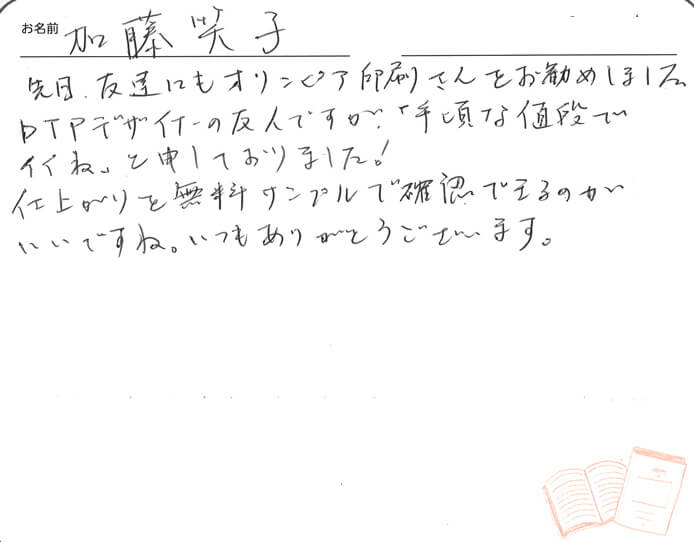 お名前 加藤笑子
先日、友達にもオリンピア印刷さんをお勧めしました
DTPデザイナーの友人ですが、「手頃な値段で
イイね」と申しておりました！
仕上がりを無料サンプルで確認できるのが
いいですね。いつもありがとうございます。